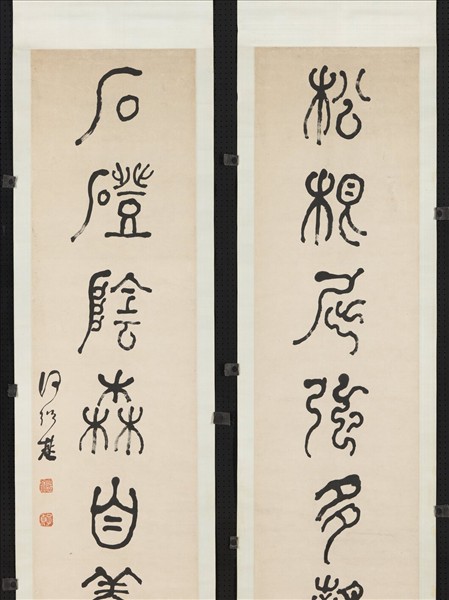 松根屈強多
石磴陰森自
何紹基